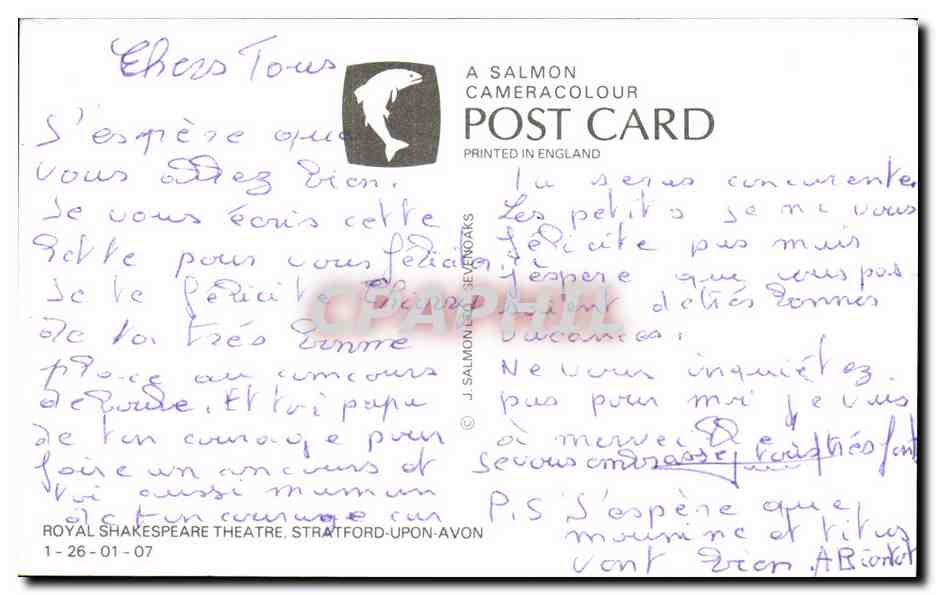 Chers Tous
J'espère que
vous allez bien.
Je vous écris cette
lettre pour vous féliciter.
Je te félicite Thierry
de ta très bonne
place au concours
de boule. Et toi papa
de ton courage pour
faire un concours et
toi aussi maman
de ton courage car
tu seras concurente.
Les petits je ne vous
félicite pas mais
j'espère que vous pas
saient de très bonnes
vacances.
Ne vous inquiétez
pas pour moi je vais
à merveille
Je vous embrasse tous très fort
P.S J'espère que
mounine et titus
vont bien. A Bientot
A SALMON
CAMERACOLOUR
POST CARD
PRINTED IN ENGLAND
© J. SALMON LTD., SEVENOAKS
ROYAL SHAKESPEARE THEATRE, STRATFORD-UPON-AVON
1-26-01-07
CPAPHIL